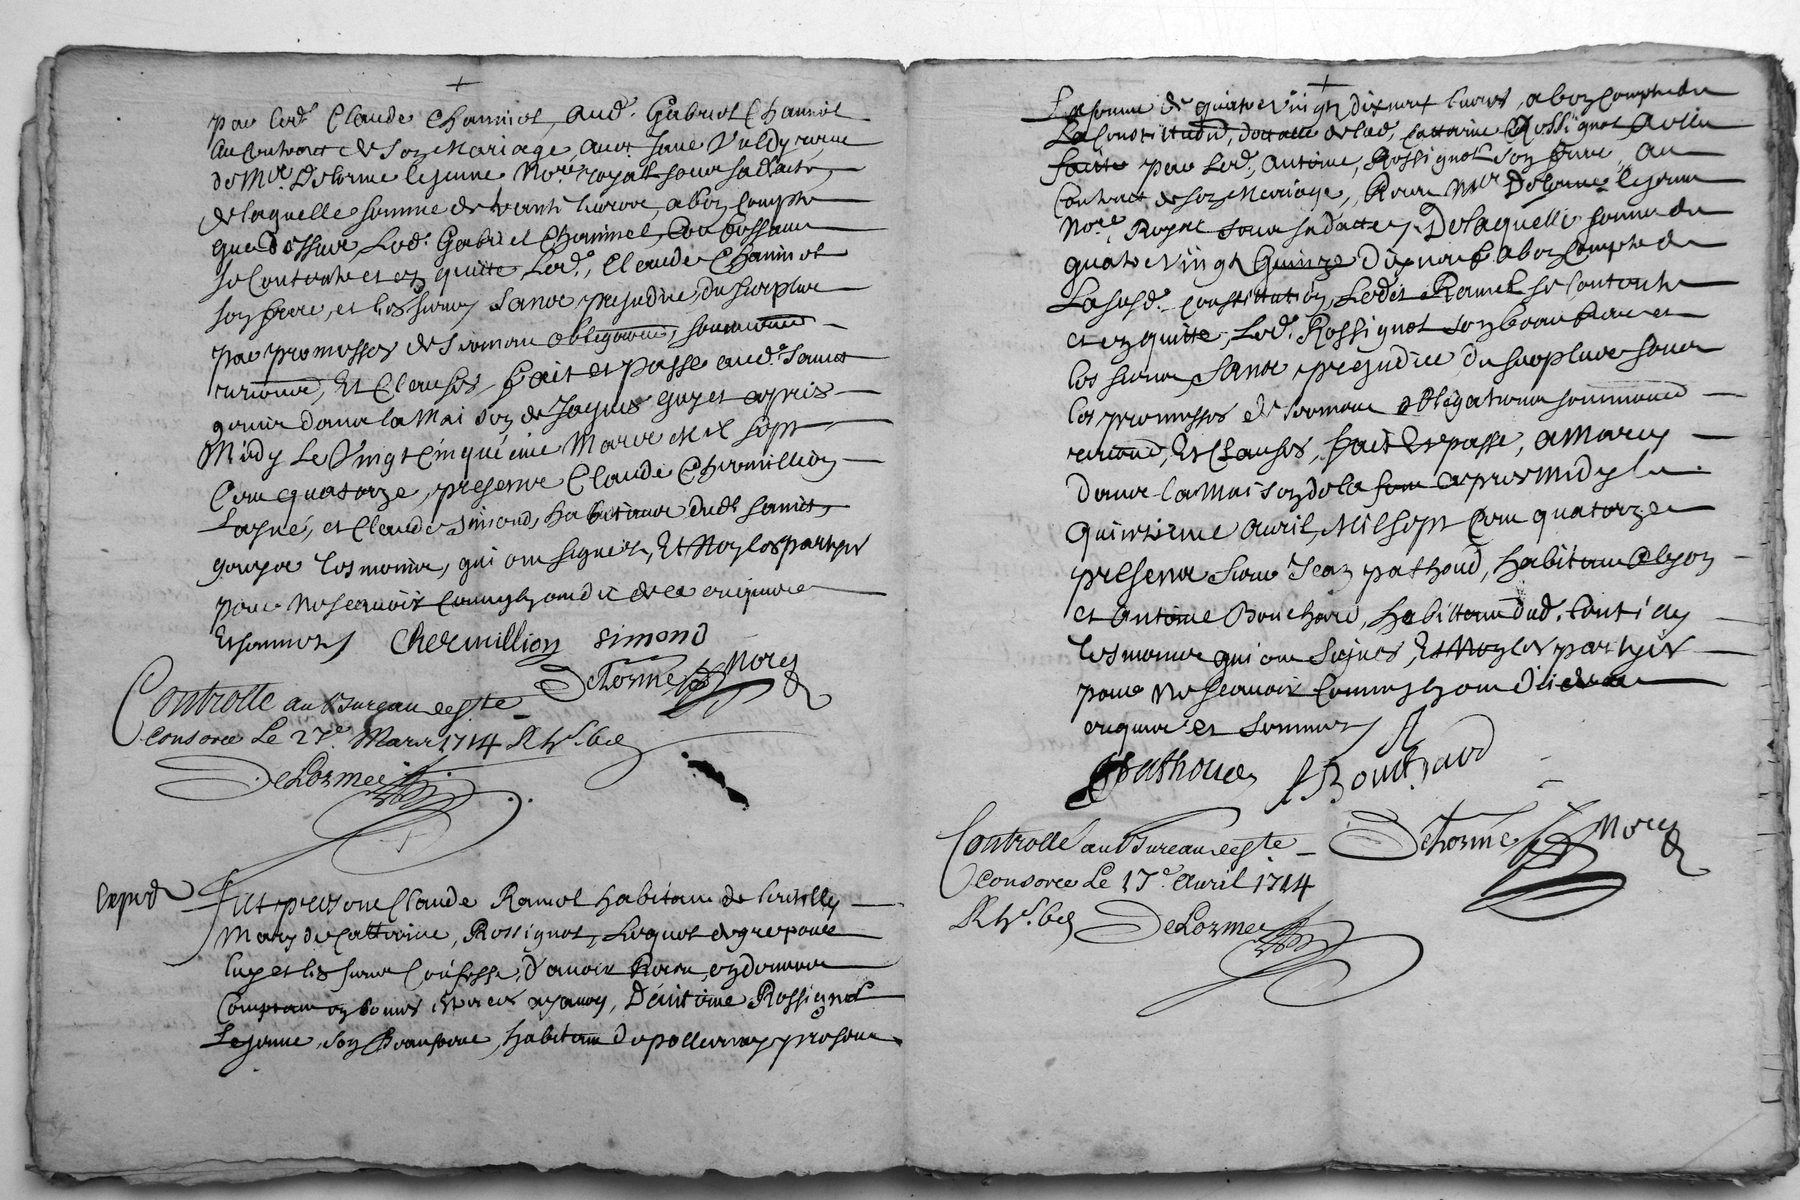 par led. Claude Chaninot, aud. Gabriel Chaninot
au contract de son mariage, avec Jane
de Me. Delorme le jeune No.re royal sous sa datte,
de laquelle somme de trante livres, a bon compte
que dessus, led. Gabriel Chaninot,
se contente et en quitte led. Claude Chaninot
son frere, et les siens sans prejudice du surplus
par promesses de serment obligations, soumissions
renons, et clauses, fait et passé aud. Sainct
dans la maison de Jaques Guyet apres
midy le vingt cinquieme mars mil sept
cens quatorze, presens Claude Chermillion
Laisné, et Claude Simond, habitans dud. Sainct
tesmoins, qui ont signés, et non les partyes
pour ne sçavoir comme ils ont dit de ce enquises
et sommés Chermillion Simond
Delorme No.re
Controlle au bureau de Ste
Consorce le 27e. Mars 1714 R.
Delorme
exped
Fut present Claude Ramel habitant de
mary de Catterine Rossignol, lequel de gré pour
luy et les siens confesse, d'avoir heu en deniers
comptant, d'Antoine Rossignol
le jeune, son beaufrere, habitant de pollionnay present
la somme de quatre vingt dix neuf livres, a bon compte de
la constitution, dottalle de lad. Catterine Rossignol a elle
faitte par led. Antoine Rossignol son frere, au
contract de son mariage, Me Delorme le jeune
No.re Royal sous sa datte, De laquelle somme de
quatre vingt quinze dix neuf a bon compte de
la susd. constitution, ledit Ramel se contente
et en quitte, led. Rossignol son beau frere et
les siens sans prejudice du surplus sous
les promesses de serment obligations soumissions
renons, et clauses, fait et passé, a Marcy
dans la maison de la apres midy le
quinzieme avril mil sept cens quatorze
presens sieur Jean pathoud, habitant a lyon
et antoine Bouchard, habittant dud.
tesmoins qui ont signés, et non les partyes
pour ne sçavoir comme ils ont dit de ce
enquises et sommés
Pathoud Bouchard
Delorme No.re
Controlle au bureau de Ste
Consorce le 17e. avril 1714
R. Delorme